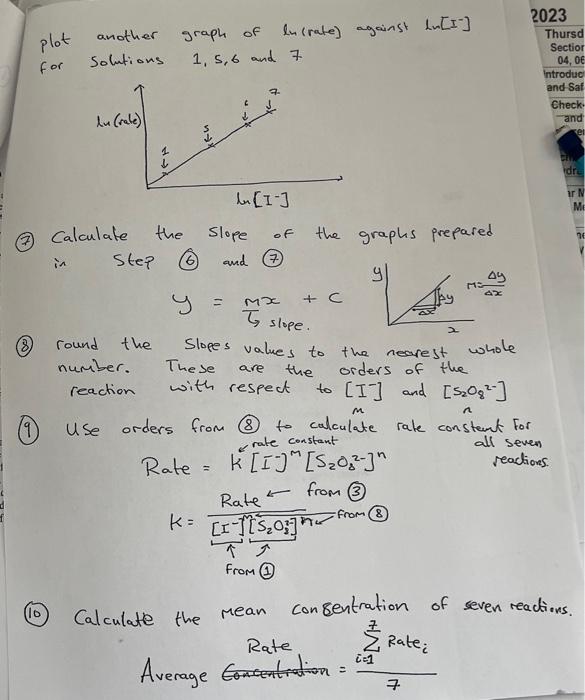 plot another graph of ln(rate) against ln[I⁻]
for Solutions 1, 5, 6 and 7
ln(rate)
1 5 6 7
ln[I⁻]
⑦ Calculate the Slope of the graphs prepared
in Step ⑥ and ⑦
y = mx + c
↳ slope.
y
Δy
Δx
x
M = Δy/Δx
⑧ round the Slopes values to the nearest whole
number. These are the orders of the
reaction with respect to [I⁻] and [S₂O₈²⁻]
m n
⑨ Use orders from ⑧ to calculate rate constent For
all seven
reactions.
rate constant
Rate = K[I⁻]ᵐ[S₂O₈²⁻]ⁿ
K = Rate ← from ③
[I⁻]ᵐ[S₂O₈²⁻]ⁿ ← From ⑧
From ①
⑩ Calculate the mean consentration of seven reactions.
Rate
Average Concentration = Σ Rateᵢ
i=1
7
7
2023
Thursd
Section
04, 06
Introduc
and Saf
Check-
and